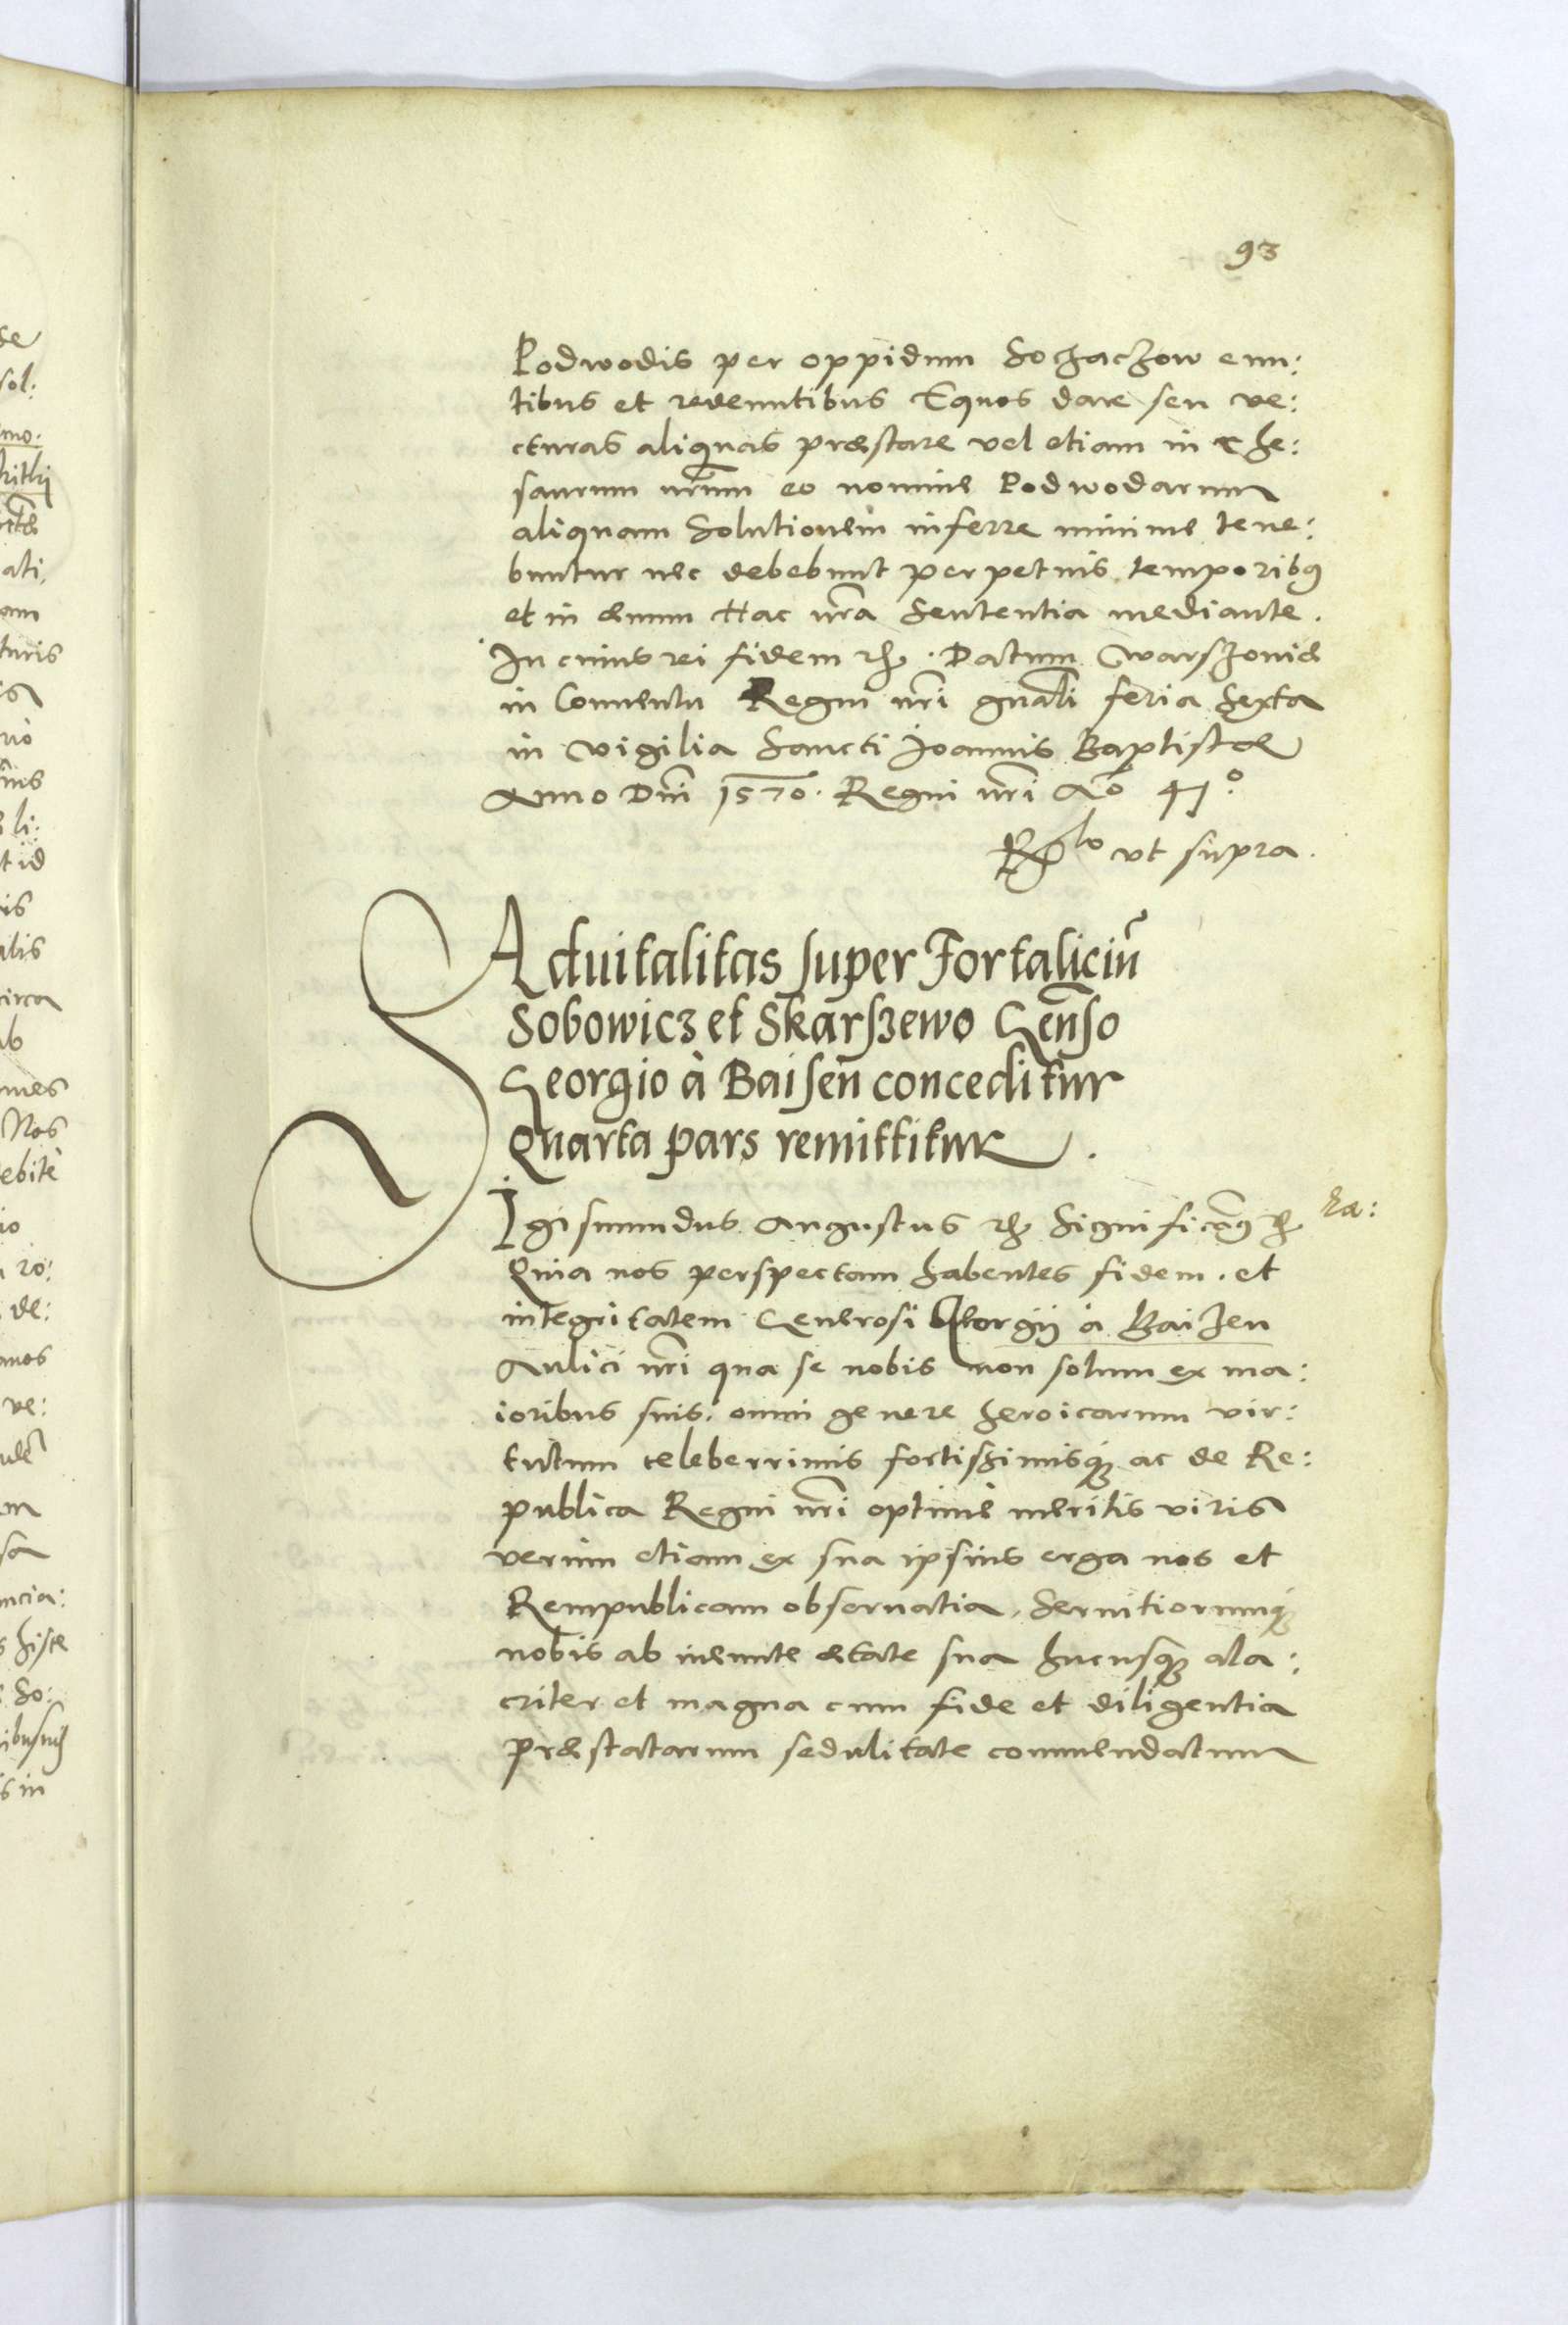 93
Podwodis per oppidum Sochaczow eun:
tibus et redeuntibus Equos dare seu ve:
cturas aliquas præstare vel etiam in The:
saurum nr̃um eo nomine Podwodarum
aliquam Solutionem inferre minime tene:
buntur nec debebunt perpetuis temporibꝫ
et in ævum Hac nr̃a Sententia mediante.
In cuius rei fidem ꝛc. Datum Warszoviæ
in Conventu Regni nr̃i gnãli feria Sexta
in vigilia Sancti Joannis Baptistæ
Anno Dn̄i 1570. Regni nr̃i Aõ 41º
Rlo ut supra.
Advitalitas super Fortaliciũ
Sobowicz et Skarszewo Gen̄so
Georgio à Baisen conceditur
Quarta pars remittitur.
Sigismundus Augustus ꝛc Significamꝫ ꝛc
Quia nos perspectam habentes fidem. et
integritatem Generosi Georgij à Baizen
Aulici nr̃i qua se nobis non solum ex ma:
ioribus suis, omni genere heroicarum vir:
tutum celeberrimis fortissimisqꝫ ac de Re:
publica Regni nr̃i optimè meritis viris
verùm etiam ex sua ipsius erga nos et
Rempublicam observatia, Servitiorumqꝫ
nobis ab ineunte ætate sua hucusqꝫ ala:
criter et magna cum fide et diligentia
præstatarum sedulitate commendatum